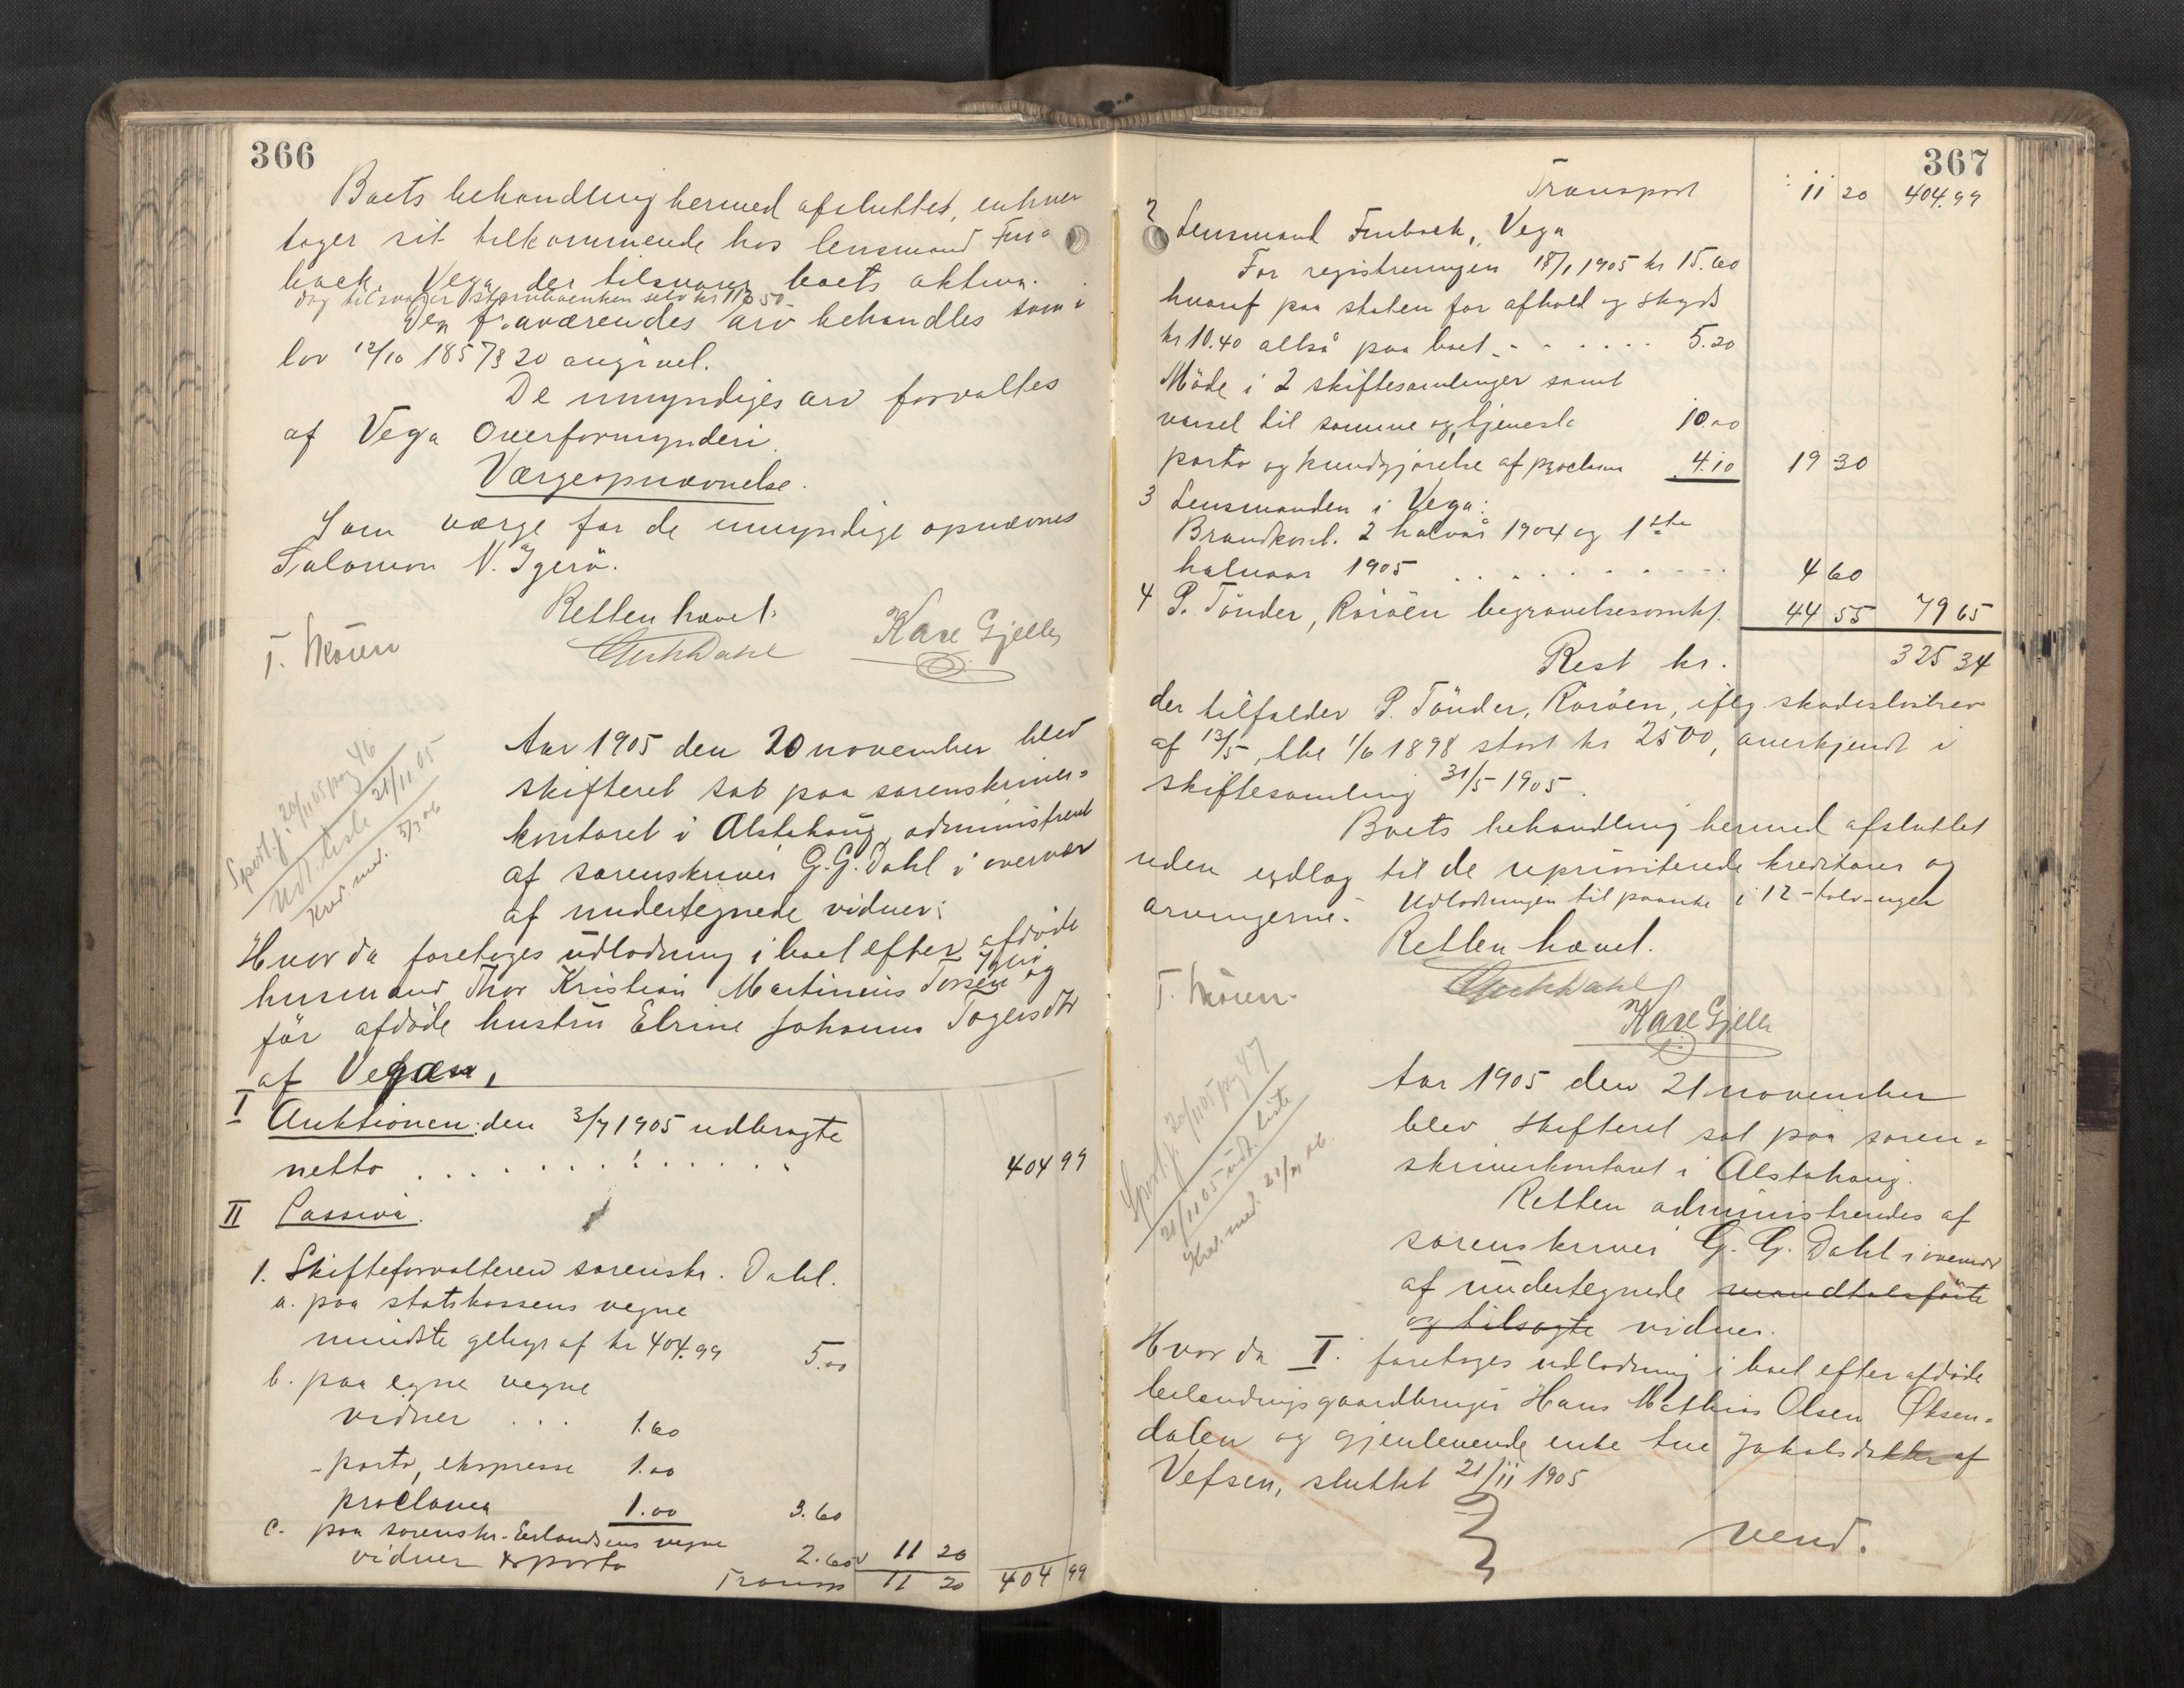 366
Boets behandling hermed afsluttet, enhver
tager sit tilkommende hos lensmand Fin=
bæck, Vega der tilsvarer boets aktiva.
dog tilsvarer
De fraværendes arv behandles som i
lov 12/10 1857 § 20 angivet.
De umyndiges arv forvaltes
af Vega Overformynderi.
Værgeopnævnelse.
Som værge for de umyndige opnævnes
Salomon N. Igerö.
Retten hævet.
T. Moren
Kare Gjelle
Sport.j. 20/11 05 pag 46
Udl. liste 21/11 05
Kred. med. 5/3 06
Aar 1905 den 20 november blev
skifteret sat paa sorenskriver=
kontoret i Alstahaug, administreret
af sorenskriver G. G. Dahl i overvær
af undertegnede vidner:
Hvor da foretoges udlodning i boet efter afdöde
husmand Thor Kristian Martinius Torsen Igerö og
før afdöde hustru Elrine Johanna Togersdtr
af Vega,
I Auktionen: den 3/7 1905 udbragte
netto . . . . . . . . . . 404 99
II Passiva.
1. Skifteforvalteren sorenskr. Dahl.
a. paa statskassens vegne
mindste gebyr af kr 404.99 5.00
b. paa egne vegne
vidner . . . 1.60
- porto, ekspresse 1.00
proclama 1.00 3.60
c. paa sorenskr. Erlandsens vegne
vidner & porto 2.60 11 20
Transp 11 20 404 99
367
Transport 11 20 404.99
2 Lensmand Finbæck, Vega
For registreringen 18/1 1905 kr 15.60
hvoraf paa staten for afhold og skyds
kr 10.40 altså paa boet . . . . . . 5.20
Möde i 2 skiftesamlinger samt
varsel til samme og tjeneste 10.00
porto og kundgjörelse af proclama 4.10 19 30
3 Lensmanden i Vega:
Brandkont. 2 halvår 1904 og 1ste
halvaar 1905 . . . . . . . . . 4 60
4 P. Tönder, Röröen begravelsesomk. 44 55 79 65
Rest kr. 325 34
der tilfalder P. Tönder, Röröen, iflg. skadeslösbrev
af 13/5, tbl. 1/6 1898 stort kr 2500, anerkjendt i
skiftesamling 31/5 1905.
Boets behandling hermed afsluttet
uden udlæg til de uprioriterede kreditorer og
arvingerne. Udlodningen til paanke i 12 - tolv - uger
Retten hævet.
T. Moren.
Kare Gjelle
Sport.j. 20/11 05 pag 47
21/11 05 udl. liste
Kred. med. 21/11 06.
Aar 1905 den 21 november
blev skifteret sat paa soren=
skriverkontoret i Alstahaug.
Retten administrendes af
sorenskriver G. G. Dahl i overvær
af undertegnede mandtalsførte
og tilsagte vidner.
Hvor da I. foretoges udlodning i boet efter afdöde
leilændingsgaardbruger Hans Mathias Olsen Øksen=
dalen og gjenlevende enke Ane Jakobsdatter af
Vefsen, sluttet 21/11 1905
vend.